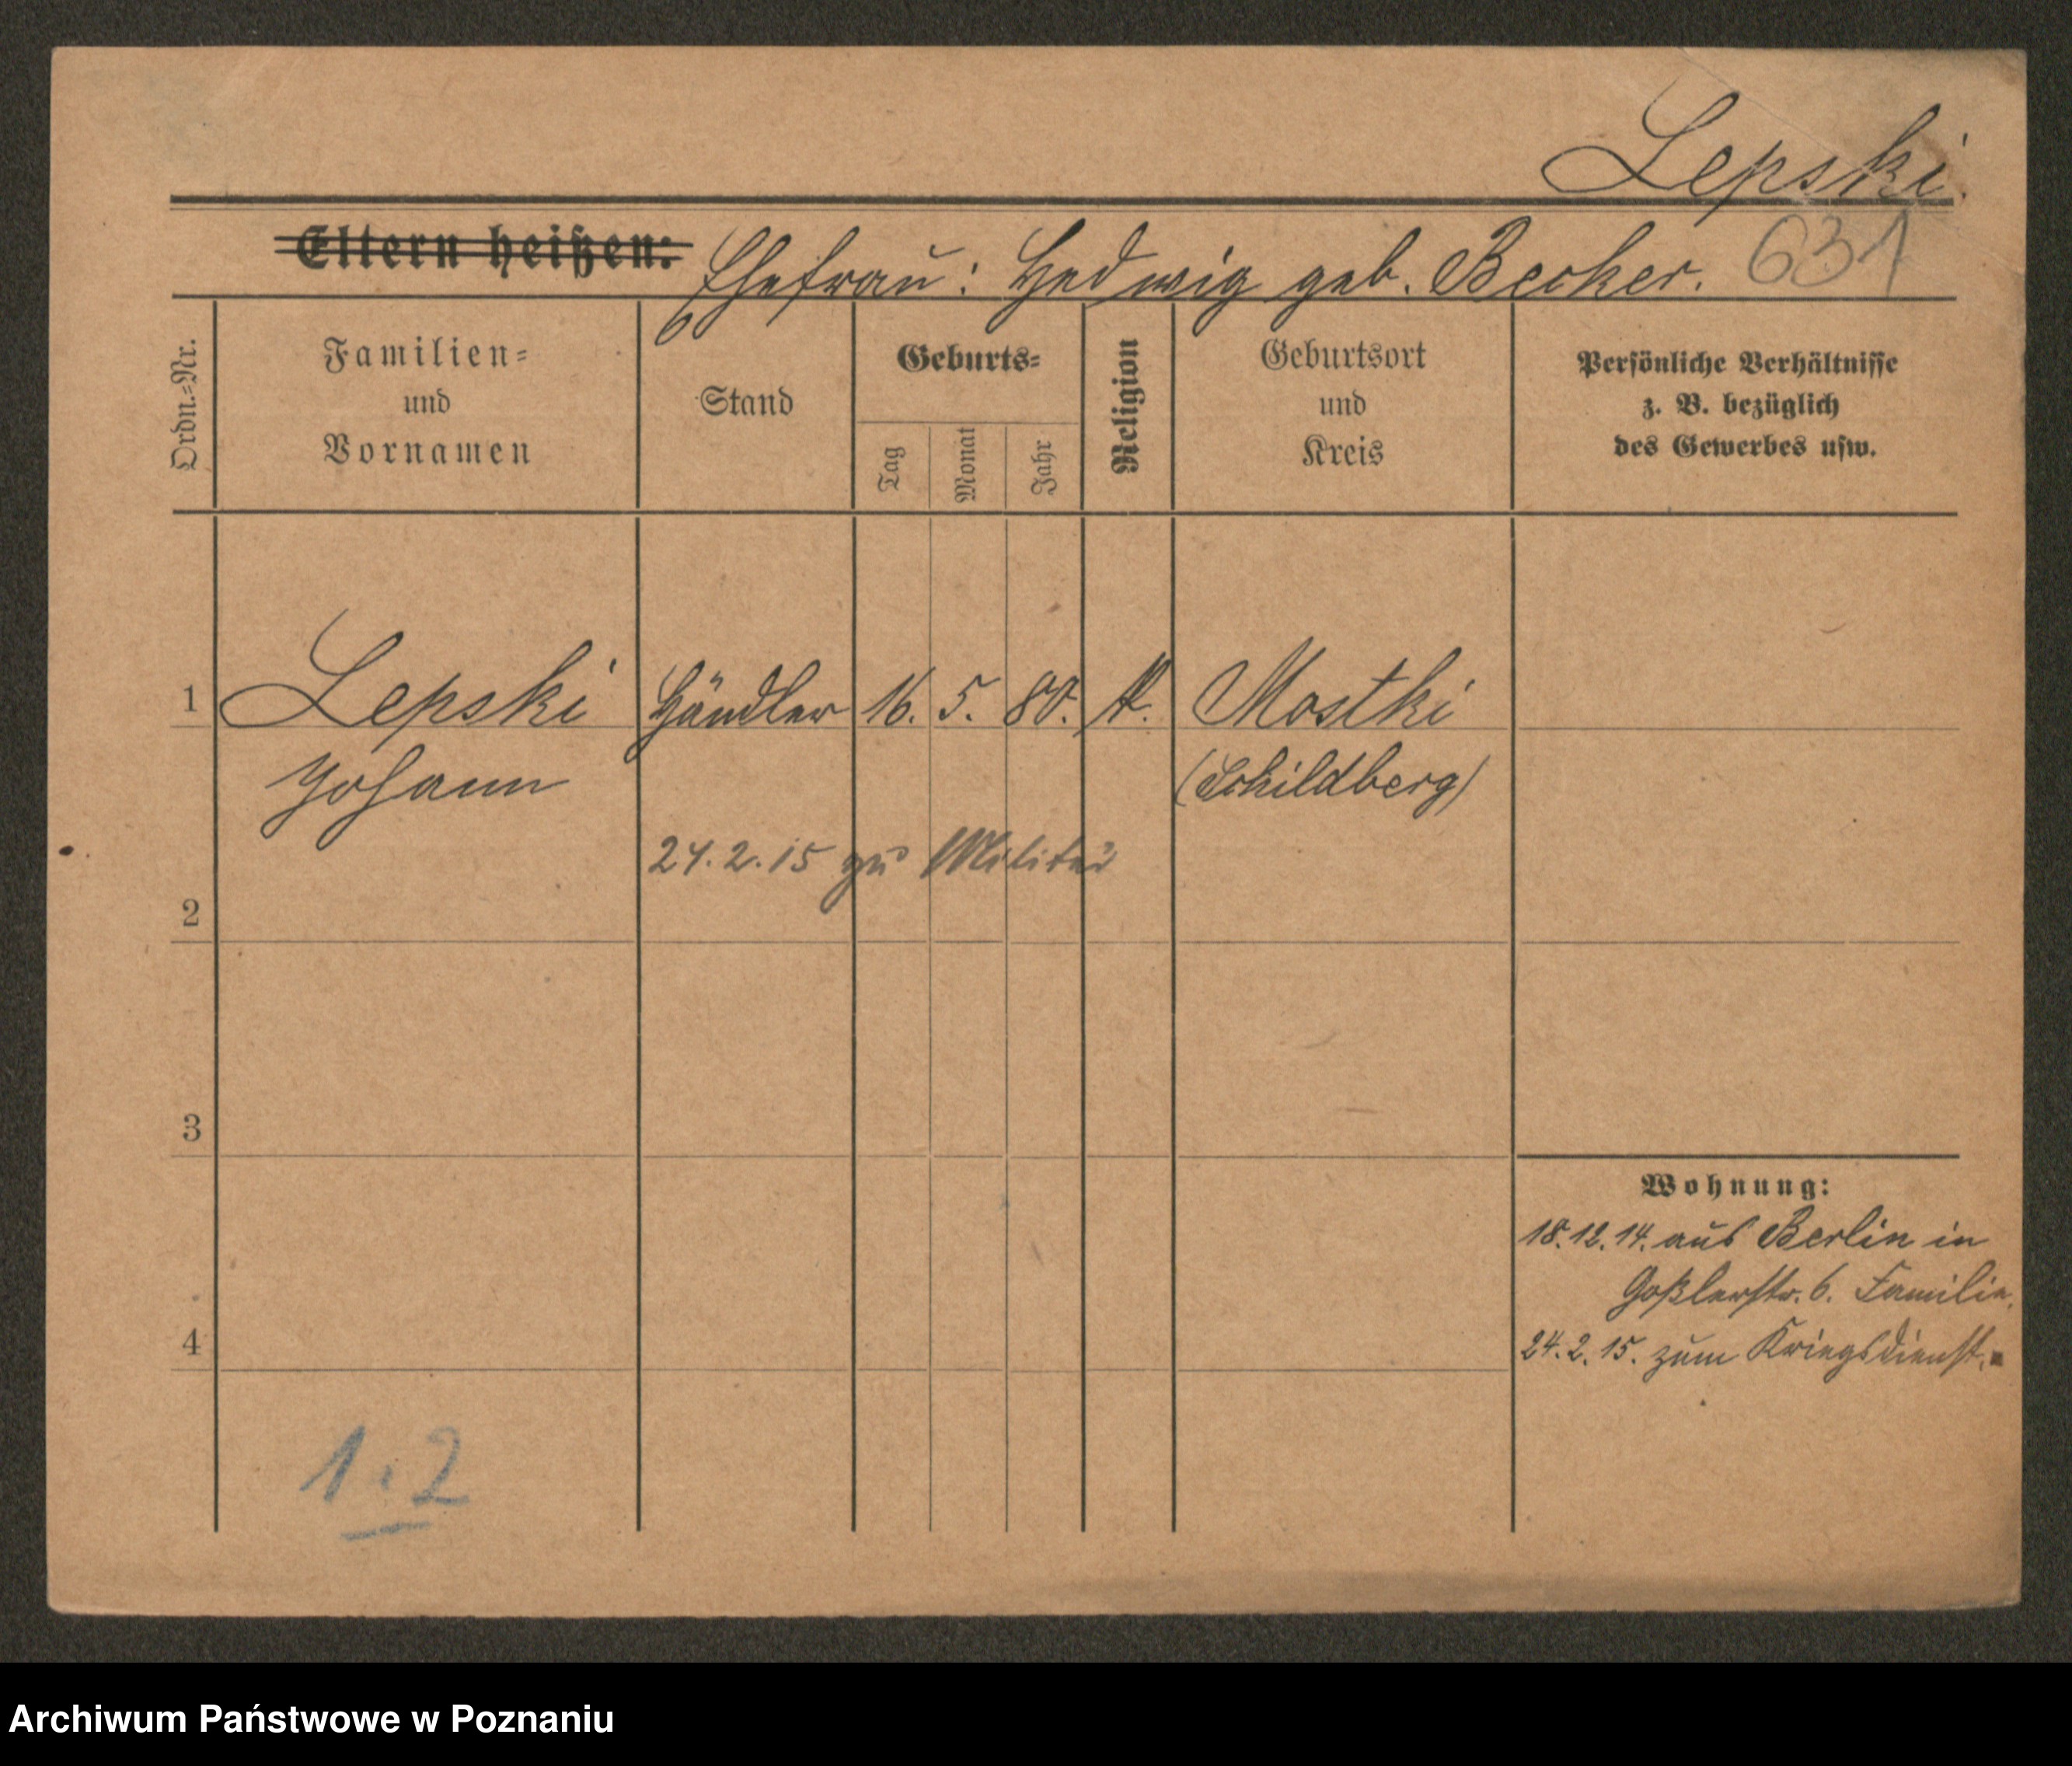 Lepski.
Eltern heißen: Ehefrau: Hedwig geb. Becker. 631
Ordn.-Nr.
Familien-
und
Vornamen
Stand
Geburts-
Tag
Monat
Jahr
Religion
Geburtsort
und
Kreis
Persönliche Verhältnisse
z. B. bezüglich
des Gewerbes usw.
1 Lepski Händler 16. 5. 80. K. Mostki
Johann (Schildberg)
24.2.15 zu Militär
2
3
Wohnung:
18.12.14. aus Berlin in
Goßlerstr. 6. Familie.
24.2.15. zum Kriegsdienst.
4
1.2
Archiwum Państwowe w Poznaniu